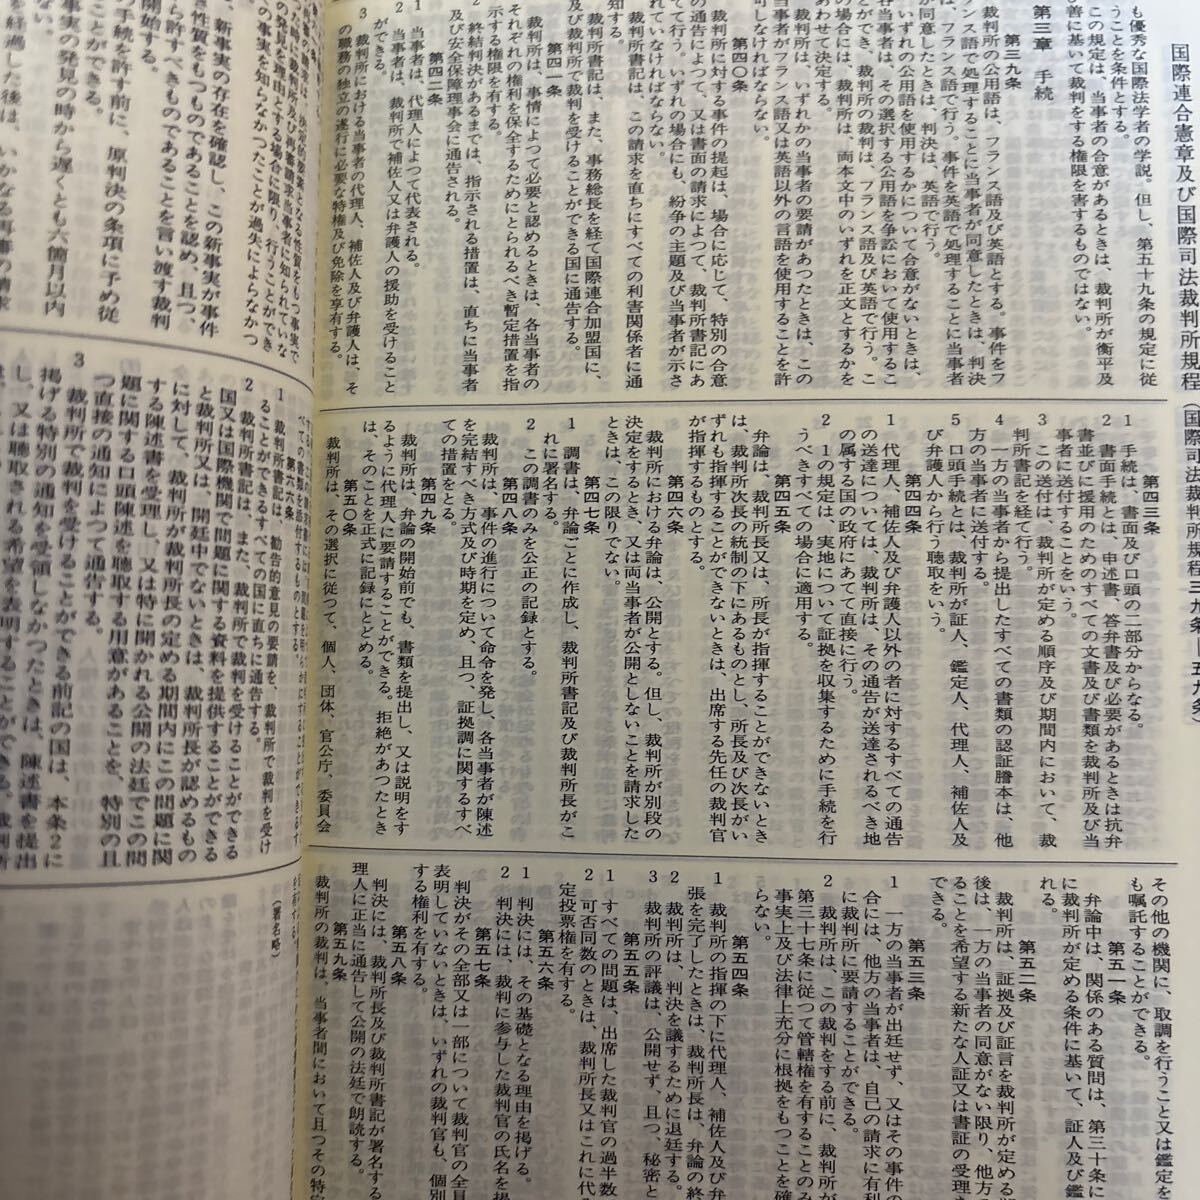 国際連合憲章及び国際司法裁判所規程(国際司法裁判所規程三九条―五九条)
も優秀な国際法学者の学説。但し、第五十九条の規定に従
うことを条件とする。
この規定は、当事者の合意があるときは、裁判所が衡平及
善に基いて裁判をする権限を害するものではない。
第三章 手続
第三九条
裁判所の公用語は、フランス語及び英語とする。事件をフ
ランス語で処理することに当事者が同意したときは、判決
は、フランス語で行う。事件を英語で処理することに当事者
が同意したときは、判決は、英語で行う。
いずれの公用語を使用するかについて合意がないときは、
各当事者は、その選択する公用語を争訟において使用するこ
とができ、裁判所の裁判は、フランス語及び英語で行う。こ
の場合には、裁判所は、両本文中のいずれを正文とするかを
あわせて決定する。
裁判所は、いずれかの当事者の要請があつたときは、この
当事者がフランス語又は英語以外の言語を使用することを許
可しなければならない。
第四〇条
裁判所に対する事件の提起は、場合に応じて、特別の合意
の通告によつて、又は書面の請求によつて、裁判所書記にあ
てて行う。いずれの場合にも、紛争の主題及び当事者が示さ
れていなければならない。
裁判所書記は、この請求を直ちにすべての利害関係者に通
知する。
裁判所書記は、また、事務総長を経て国際連合加盟国に、
及び裁判所で裁判を受けることができる国に通告する。
第四一条
裁判所は、事情によつて必要と認めるときは、各当事者の
それぞれの権利を保全するためにとられるべき暫定措置を指
示する権限を有する。
2 終結判決があるまでは、指示される措置は、直ちに当事者
及び安全保障理事会に通告される。
第四二条
1 当事者は、代理人によつて代表される。
2 当事者は、裁判所で補佐人又は弁護人の援助を受けること
ができる。
3 裁判所における当事者の代理人、補佐人及び弁護人は、そ
の職務の独立の遂行に必要な特権及び免除を享有する。
第四三条
1 手続は、書面及び口頭の二部分からなる。
2 書面手続とは、申述書、答弁書及び必要があるときは抗弁
書並びに援用のためのすべての文書及び書類を裁判所及び当
事者に送付することをいう。
3 この送付は、裁判所が定める順序及び期間内において、裁
判所書記を経て行う。
4 一方の当事者から提出したすべての書類の認証謄本は、他
方の当事者に送付する。
5 口頭手続とは、裁判所が証人、鑑定人、代理人、補佐人及
び弁護人から行う聴取をいう。
第四四条
1 代理人、補佐人及び弁護人以外の者に対するすべての通告
の送達については、裁判所は、その通告が送達されるべき地
の属する国の政府にあてて直接に行う。
2 1の規定は、実地について証拠を収集するために手続を行
うべきすべての場合に適用する。
第四五条
弁論は、裁判所長又は、所長が指揮することができないとき
は、裁判所次長の統制の下にあるものとし、所長及び次長がい
ずれも指揮することができないときは、出席する先任の裁判官
が指揮するものとする。
第四六条
裁判所における弁論は、公開とする。但し、裁判所が別段の
決定をするとき、又は両当事者が公開としないことを請求した
ときは、この限りでない。
第四七条
1 調書は、弁論ごとに作成し、裁判所書記及び裁判所長がこ
れに署名する。
2 この調書のみを公正の記録とする。
第四八条
裁判所は、事件の進行について命令を発し、各当事者が陳述
を完結すべき方式及び時期を定め、且つ、証拠調に関するすべ
ての措置をとる。
第四九条
裁判所は、弁論の開始前でも、書類を提出し、又は説明をす
るように代理人に要請することができる。拒絶があつたとき
は、そのことを正式に記録にとどめる。
第五〇条
裁判所は、その選択に従つて、個人、団体、官公庁、委員会
その他の機関に、取調を行うこと又は鑑定を
も嘱託することができる。
第五一条
弁論中は、関係のある質問は、第三十条に
に裁判所が定める条件に基いて、証人及び鑑
れる。
第五二条
裁判所は、証拠及び証言を裁判所が定める
後は、一方の当事者の同意がない限り、他方
ることを希望する新たな人証又は書証の受理
できる。
第五三条
1 一方の当事者が出廷せず、又はその事件の
合には、他方の当事者は、自己の請求に有利
に裁判所に要請することができる。
2 裁判所は、この裁判をする前に、裁判所が
第三十七条に従つて管轄権を有することのみ
事実上及び法律上充分に根拠をもつことを確
らない。
第五四条
1 裁判所の指揮の下に代理人、補佐人及び弁
張を完了したときは、裁判所長は、弁論の終
2 裁判所は、判決を議するために退廷する。
3 裁判所の評議は、公開せず、且つ、秘密と
第五五条
1 すべての問題は、出席した裁判官の過半数
2 可否同数のときは、裁判所長又はこれに代
定投票権を有する。
第五六条
1 判決には、その基礎となる理由を掲げる。
2 判決には、裁判に参与した裁判官の氏名を掲
第五七条
判決がその全部又は一部について裁判官の全員
表明していないときは、いずれの裁判官も、個別
する権利を有する。
第五八条
判決には、裁判所長及び裁判所書記が署名する
理人に正当に通告して公開の法廷で朗読する。
第五九条
裁判所の裁判は、当事者間において且つその特定
決定的要素となる性質をもつ事実で
時に裁判所及び再審請求当事者に知られていな
の発見を理由とする場合に限り、行うことができ
の事実を知らなかつたことが過失によらなかつ
新事実の存在を確認し、この新事実が事件
き性質をもつものであることを認め、且つ、
ら許すべきものであることを言い渡す裁判
開始する。
の手続を許す前に、原判決の条項に予め従
ことができる。
事実の発見の時から遅くとも六箇月以内
を経過した後は、いかなる再審の請求
べての書類を添付するものとする。
第六六条
1 裁判所書記は、勧告的意見の要請を、裁判所で裁判を受け
ることができるすべての国に直ちに通告する。
2 裁判所書記は、また、裁判所で裁判を受けることができる
国又は国際機関で問題に関する資料を提供することができる
と裁判所又は、開廷中でないときは、裁判所長が認めるもの
に対して、裁判所が裁判所長の定める期間内にこの問題に関
する陳述書を受理し、又は特に開かれる公開の法廷でこの問
題に関する口頭陳述を聴取する用意があることを、特別の且
つ直接の通知によつて通告する。
3 裁判所で裁判を受けることができる前記の国は、本条2に
掲げる特別の通知を受領しなかつたときは、陳述書を提出
し、又は聴取される希望を表明することができる。裁判所
(署名略)